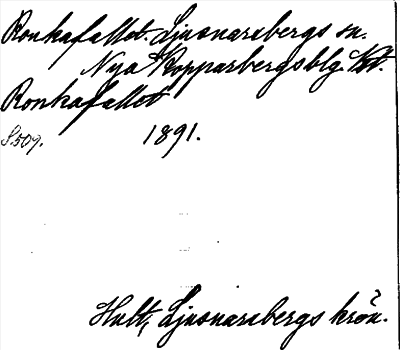 Ronkafallet. Ljusnarsbergs sn.
Nya Kopparbergs blg. Kt.
Ronkafallet
S. 509. 1891.
Hult, Ljusnarsbergs krön.